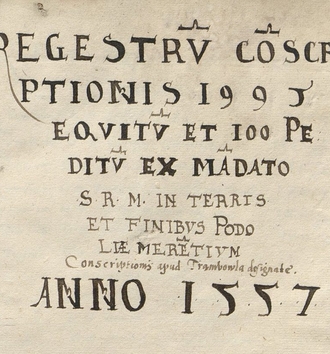 REGESTRŪ CŌSCR
PTIONIS 1993
EQVITŪ ET 100 PE
DITŪ EX MĀDATO
S. R. M. IN TERRIS
ET FINIBVS PODO
LIÆ MERĒTIVM
Conscriptionis apud Trambowla designatę.
ANNO 1557